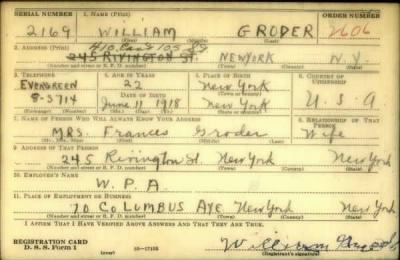 SERIAL NUMBER 1. NAME (Print) ORDER NUMBER
2169 WILLIAM GRODER 2606
(First) (Middle) (Last)
2. ADDRESS (Print)
410 East 105 St
245 RIVINGTON ST. NEW YORK N.Y.
(Number and street or R. F. D. number) (Town) (County) (State)
3. TELEPHONE 4. AGE IN YEARS 5. PLACE OF BIRTH 6. COUNTRY OF CITIZENSHIP
EVERGREEN 22 New York
DATE OF BIRTH (Town or county)
8-3714 June 11 1918 New York U.S.A
(Exchange) (Number) (Mo.) (Day) (Yr.) (State or country)
7. NAME OF PERSON WHO WILL ALWAYS KNOW YOUR ADDRESS 8. RELATIONSHIP OF THAT PERSON
MRS. Frances Groder Wife
(Mr., Mrs., Miss) (First) (Middle) (Last)
9. ADDRESS OF THAT PERSON
245 Rivington St. New York New York
(Number and street or R. F. D. number) (Town) (County) (State)
10. EMPLOYER'S NAME
W.P.A
11. PLACE OF EMPLOYMENT OR BUSINESS
70 COLUMBUS AVE New York New York
(Number and street or R. F. D. number) (Town) (County) (State)
I AFFIRM THAT I HAVE VERIFIED ABOVE ANSWERS AND THAT THEY ARE TRUE.
REGISTRATION CARD
D. S. S. Form 1 16-17105 William Groder
(Registrant's signature)